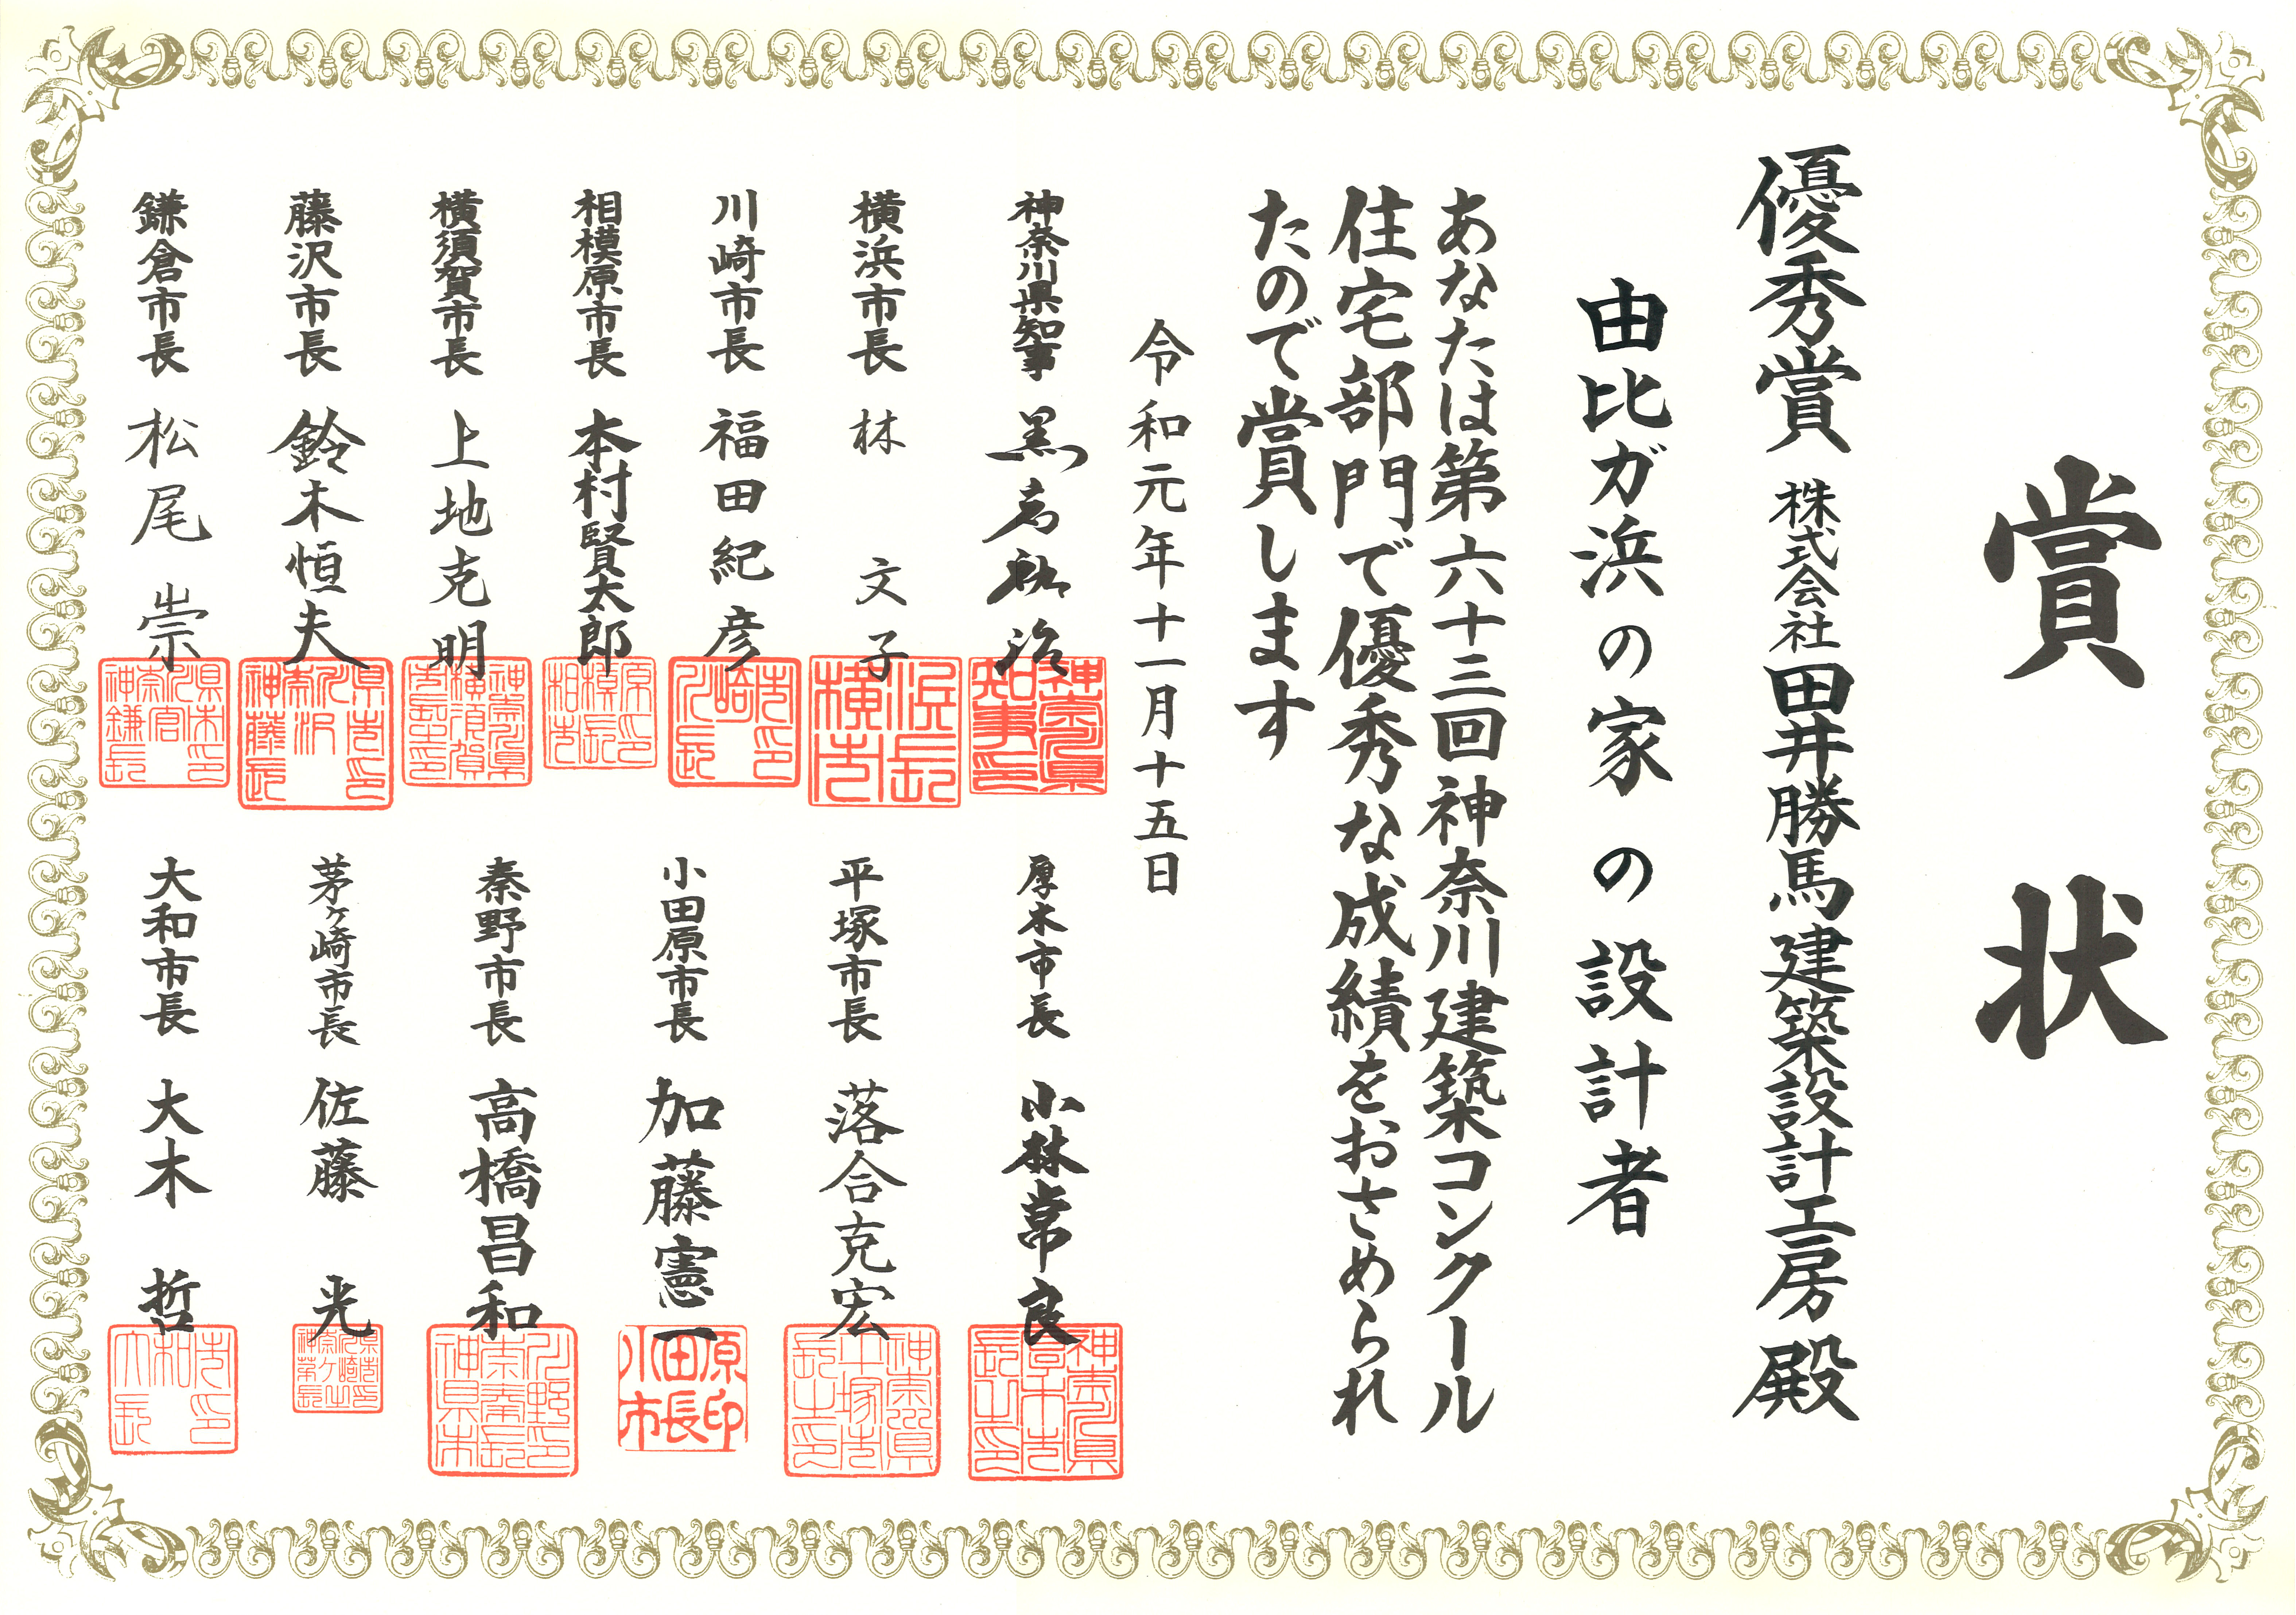 賞状
優秀賞 株式会社田井勝馬建築設計工房 殿
由比ガ浜の家の設計者
あなたは第六十三回神奈川建築コンクール
住宅部門で優秀な成績をおさめられ
たので賞します
令和元年十一月十五日
神奈川県知事 黒岩祐治
横浜市長 林 文子
川崎市長 福田紀彦
相模原市長 本村賢太郎
横須賀市長 上地克明
藤沢市長 鈴木恒夫
鎌倉市長 松尾 崇
厚木市長 小林常良
平塚市長 落合克宏
小田原市長 加藤憲一
秦野市長 高橋昌和
茅ヶ崎市長 佐藤 光
大和市長 大木 哲
小田原市長印